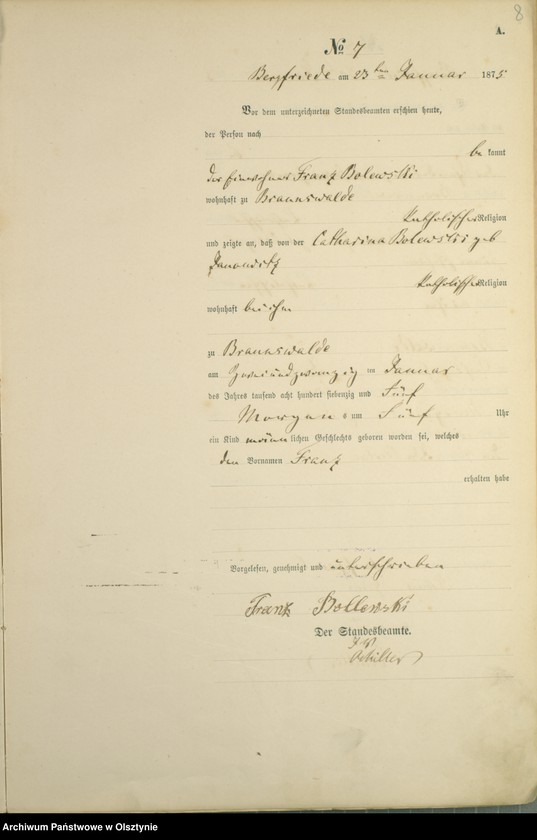 8
A.
No 7
Bergfriede am 23 ten Januar 1875
Vor dem unterzeichneten Standesbeamten erschien heute,
der Person nach
be kannt
der Einwohner Franz Bolewski
wohnhaft zu Braunswalde
katholischer Religion
und zeigte an, daß von der Catharina Bolewski geb
katholischer Religion
wohnhaft bei ihm
zu Braunswalde
am zweiundzwanzig ten Januar
des Jahres tausend acht hundert siebenzig und Fünf
Morgens um Fünf Uhr
ein Kind männ lichen Geschlechts geboren worden sei, welches
den Vornamen Franz
erhalten habe
Vorgelesen, genehmigt und unterschrieben
Frank Bollewski
Der Standesbeamte.
Archiwum Państwowe w Olsztynie